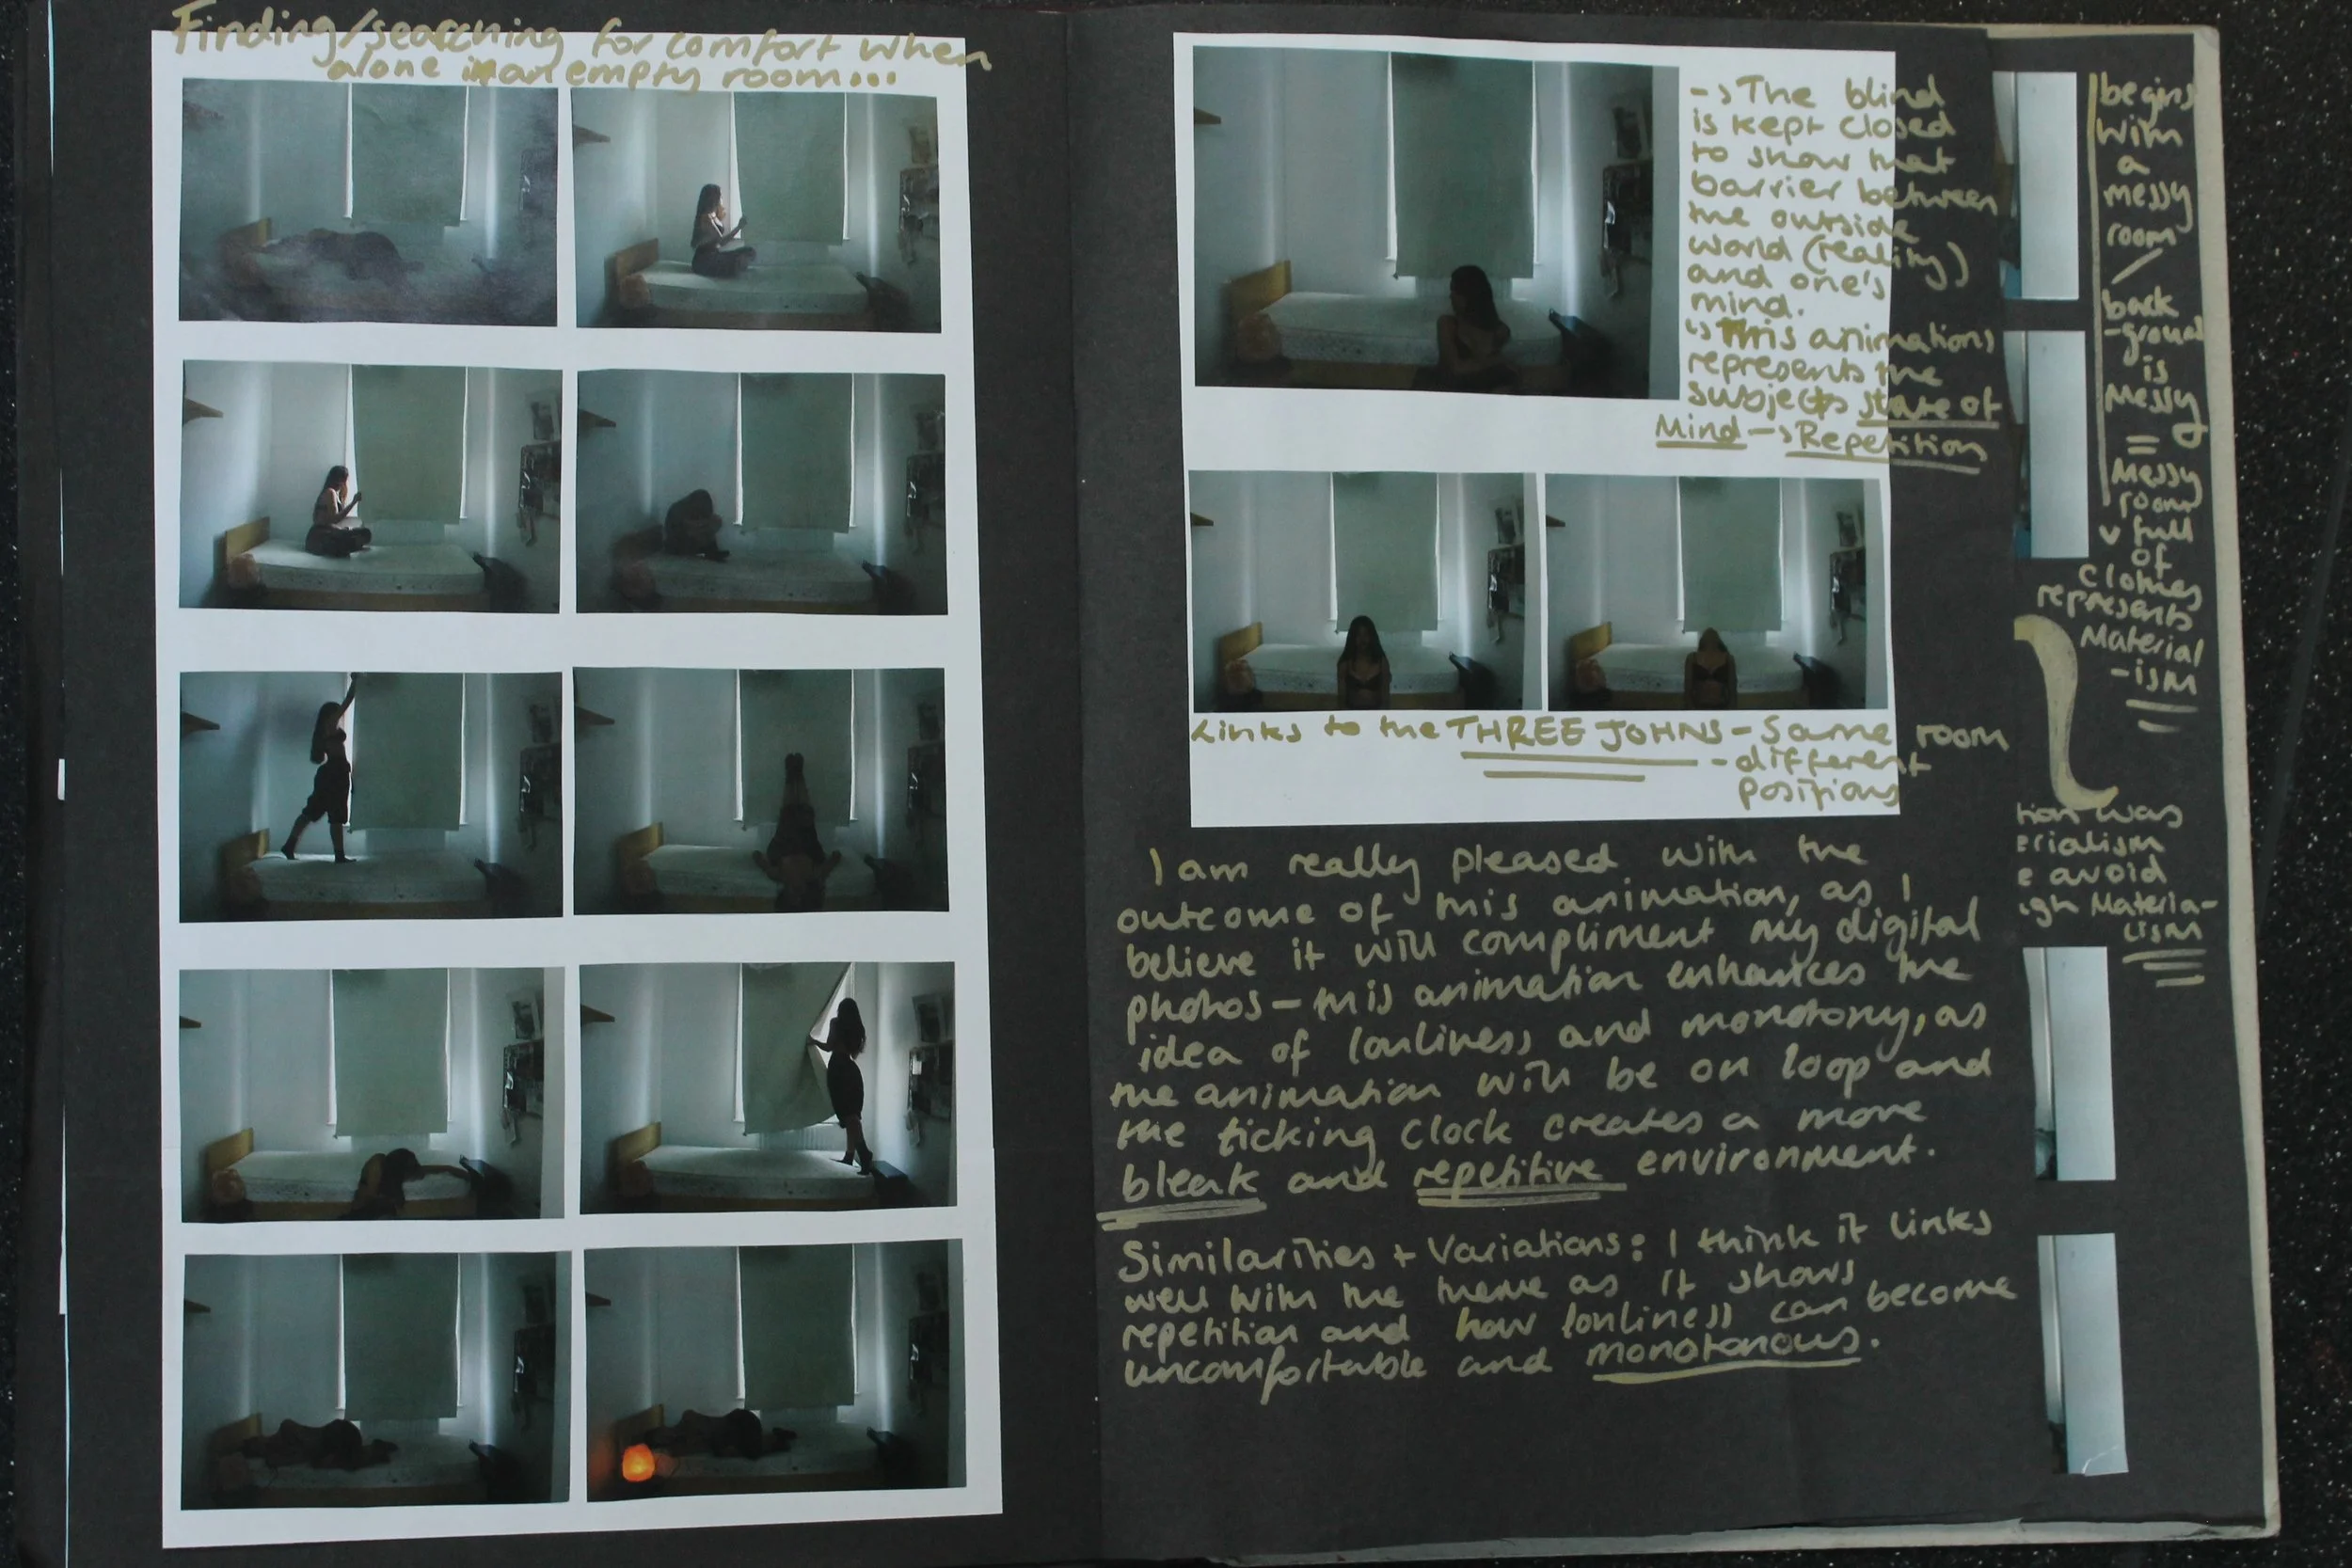 Finding/searching for comfort when
alone in an empty room...
-> The blind
is kept closed
to show that
barrier between
the outside
world (reality)
and one's
mind.
↳ This animations
represents the
subjects state of
Mind -> Repetition
Links to the THREE JOHNS - Same room
- different
positions
I am really pleased with the
outcome of this animation, as I
believe it will compliment my digital
photos - this animation enhances the
idea of lonliness and monotony, as
the animation will be on loop and
the ticking clock creates a more
bleak and repetitive environment.
Similarities + Variations: I think it links
well with the theme as it shows
repetition and how lonliness can become
uncomfortable and monotonous.
begins
with
a
messy
room
/
back
-ground
is
messy
=
Messy
room
v full
of
clothes
represents
Material
-ism
tion was
erialism
e avoid
igh Materia-
lism